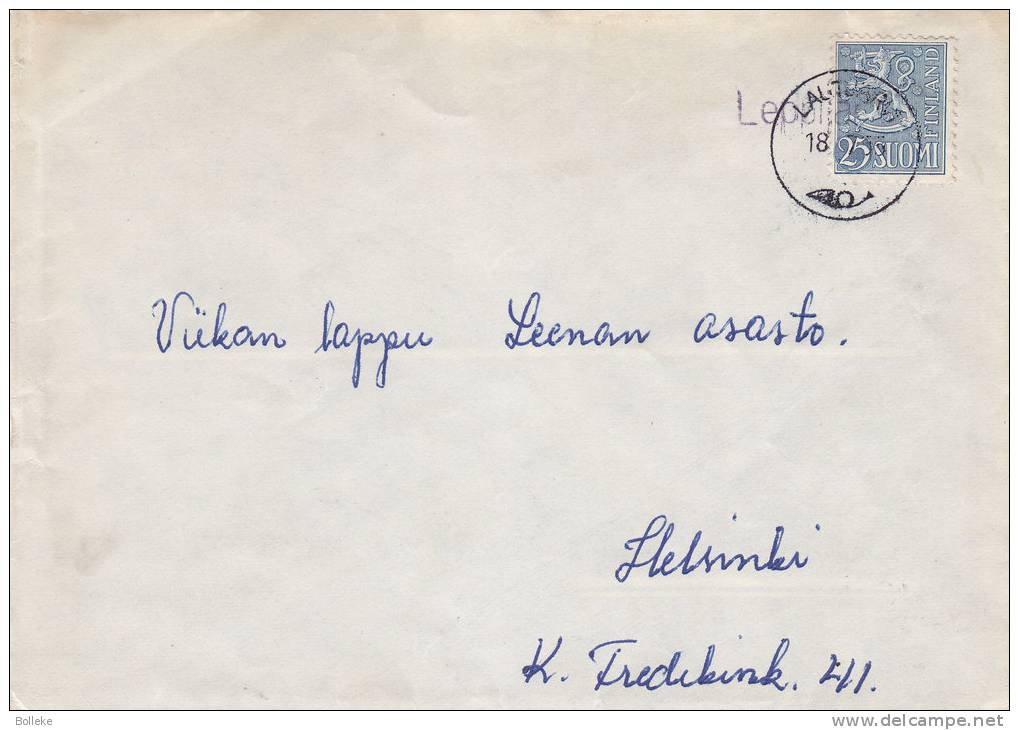 FINLAND
18
25 SUOMI
Viikan lappu Leenan asasto.
Helsinki
K. Fredrikink. 411.
Bolleke
www.delcampe.net